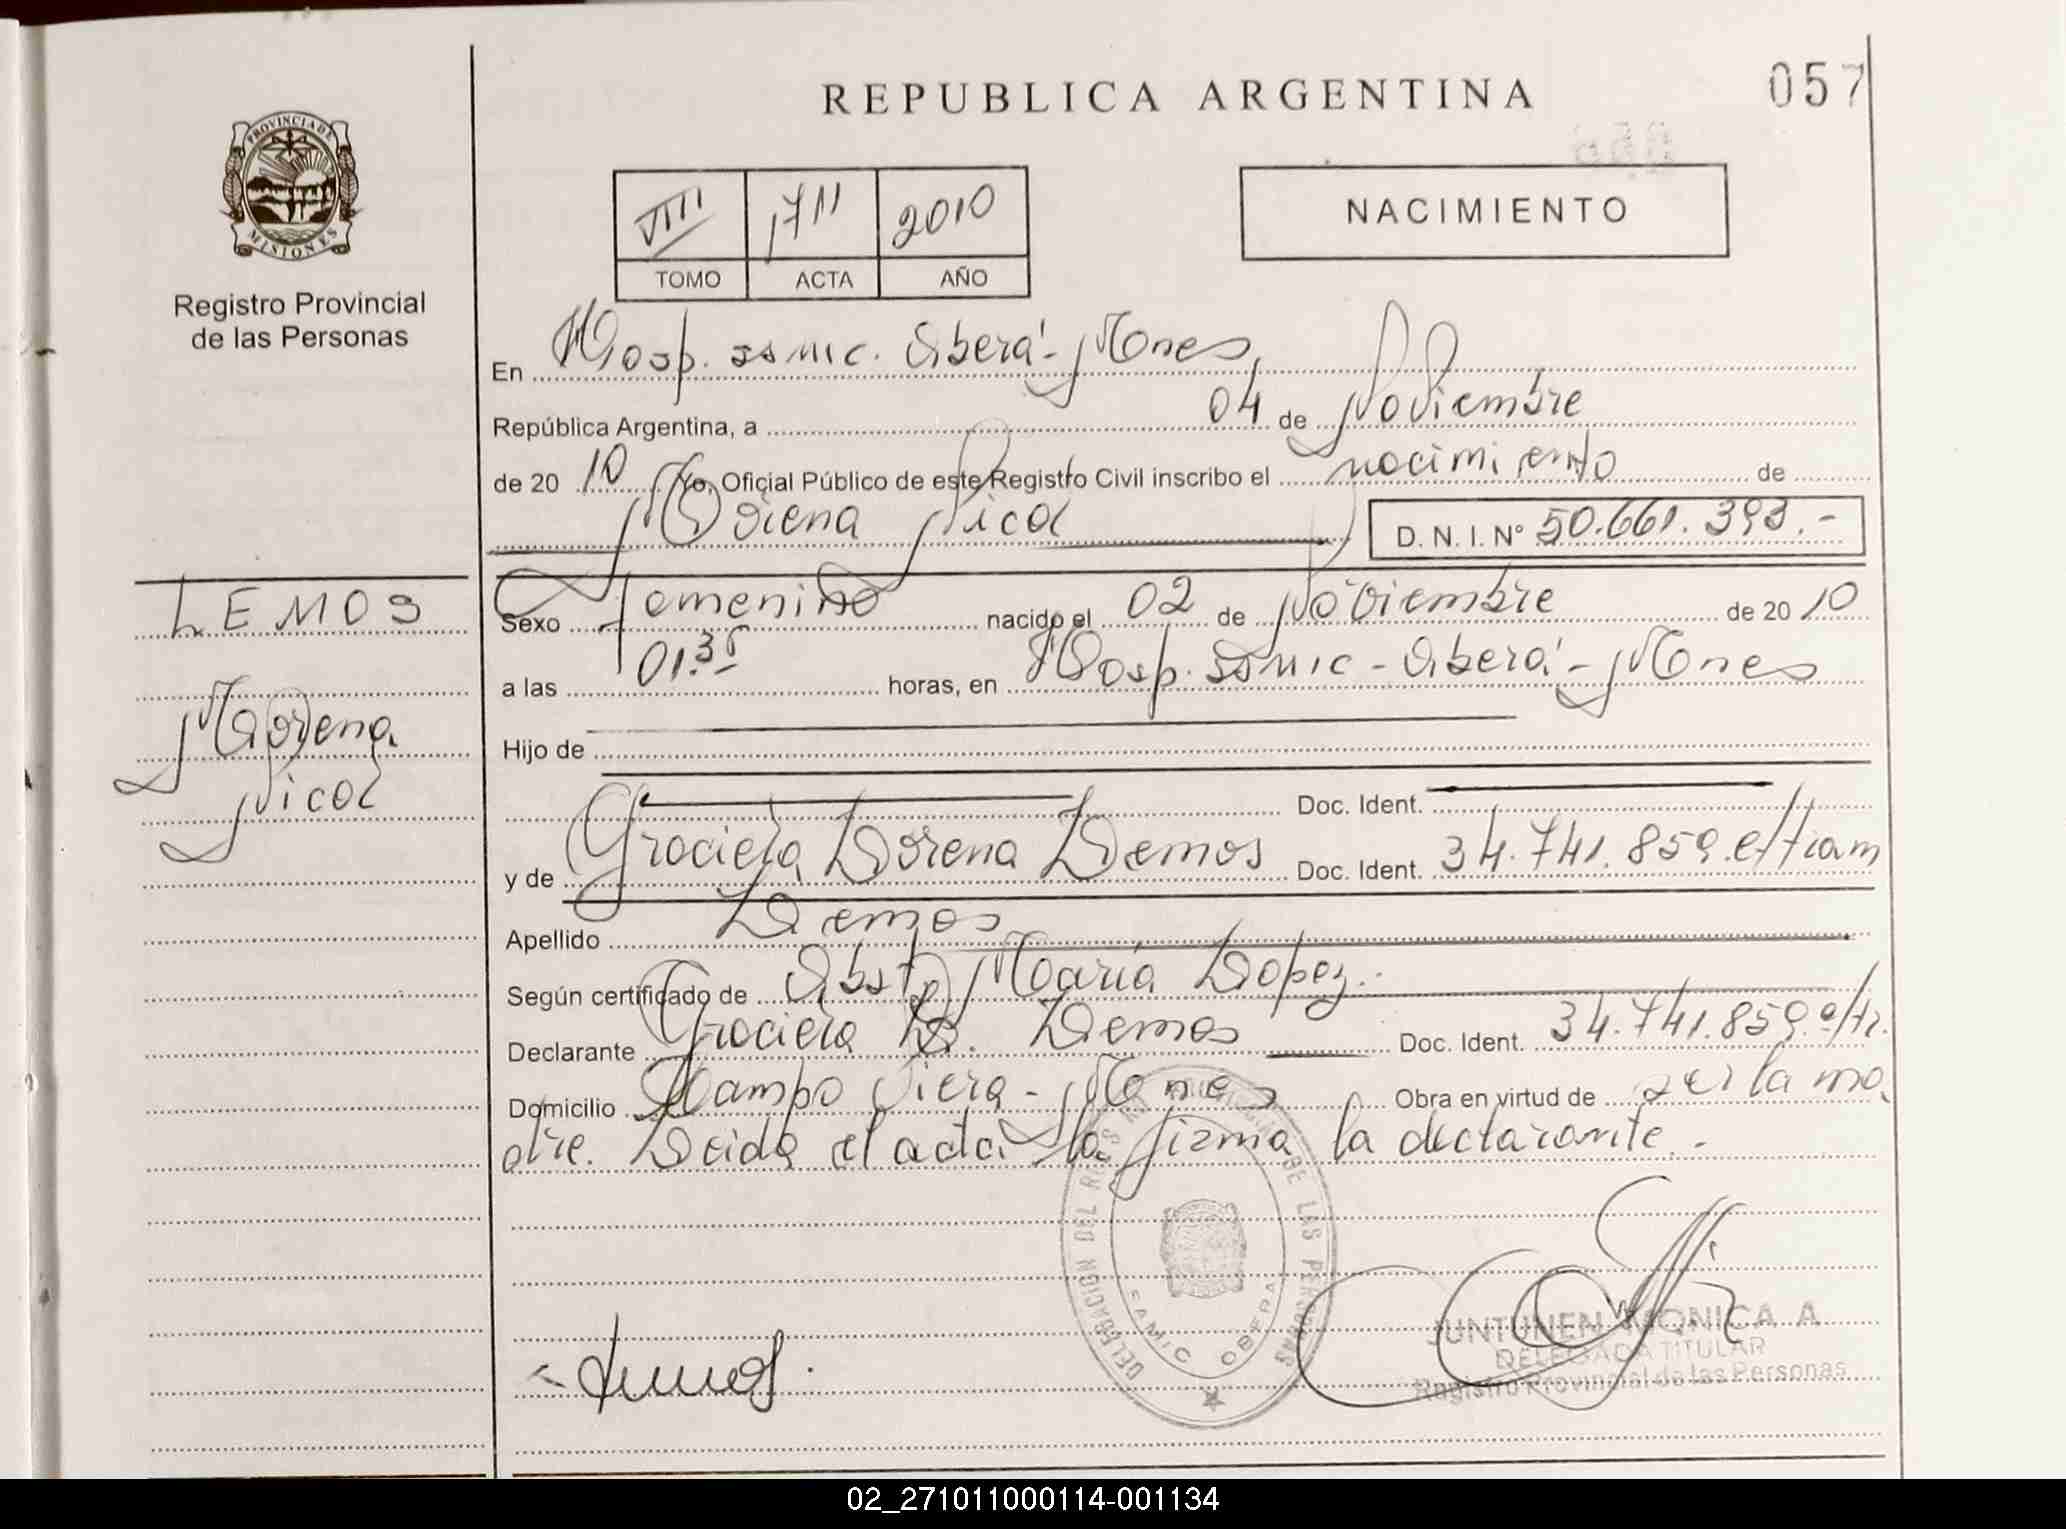 REPUBLICA ARGENTINA
057
PROVINCIA DE
MISIONES
Registro Provincial
de las Personas
VIII 1711 2010
TOMO ACTA AÑO
NACIMIENTO
En Hosp. samic. Oberá - Mnes,
República Argentina, a 04 de Noviembre
de 20 10 Yo, Oficial Público de este Registro Civil inscribo el nacimiento de
Morena Nicol D. N. I. Nº 50.661.393.-
LEMOS
Morena
Nicol
Sexo femenino nacido el 02 de Noviembre de 20 10
a las 01.35 horas, en Hosp. samic - Oberá - Mnes
Hijo de
Doc. Ident.
y de Graciela Lorena Lemos Doc. Ident. 34.741.859.
Apellido Lemos
Según certificado de Obst. María Lopez.
Declarante Graciela L. Lemos Doc. Ident. 34.741.859.
Domicilio Campo Viera - Mnes Obra en virtud de ser la ma
dre. Leida el acta la firma la declarante.-
DELEGACION DEL DE LAS PERSONAS
SAMIC OBERA
Lemos
JUNTUNEN MONICA A
DELEGADA TITULAR
Registro Provincial de las Personas
02_271011000114-001134